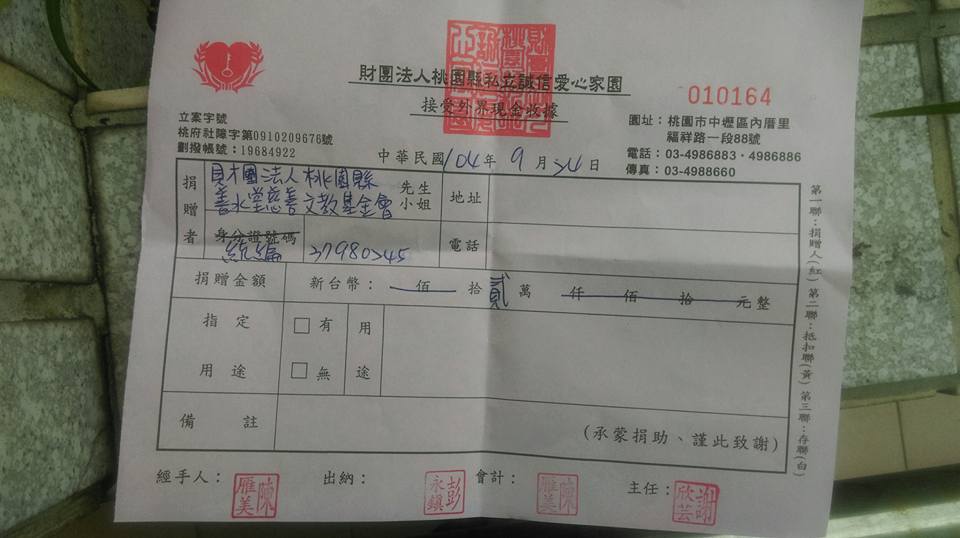 財團法人桃園縣私立誠信愛心家園
接受外界現金收據
010164
立案字號
桃府社障字第0910209676號
劃撥帳號：19684922
園址：桃園市中壢區內厝里
福祥路一段88號
電話：03-4986883．4986886
傳真：03-4988660
中華民國104年9月24日
捐贈者
財團法人桃園縣
善水堂慈善文教基金會
先生
小姐
地址
身分證號碼
統編
37980245
電話
捐贈金額
新台幣：佰拾貳萬仟佰拾元整
指定
用途
□有
□無
用途
備註
(承蒙捐助、謹此致謝)
第一聯：捐贈人(紅) 第二聯：抵扣聯(黃) 第三聯：存聯(白)
經手人：
陳雁美
出納：
彭永鎮
會計：
陳雁美
主任：
謝欣芸